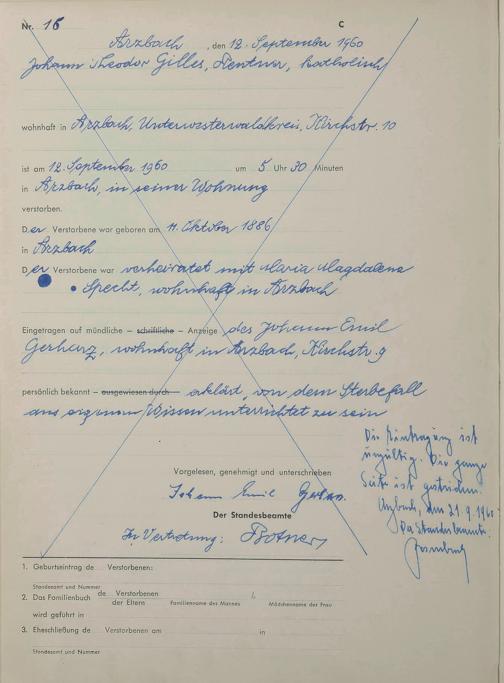 Nr. 16 C
Arzbach, den 12. September 1960
Johann Theodor Gilles, Rentner, katholisch
wohnhaft in Arzbach, Unterwesterwaldkreis, Kirchstr. 10
ist am 12. September 1960 um 5 Uhr 30 Minuten
in Arzbach, in seiner Wohnung
verstorben.
Der Verstorbene war geboren am 11. Oktober 1886
in Arzbach
Der Verstorbene war verheiratet mit Maria Magdalena
Specht, wohnhaft in Arzbach
Eingetragen auf mündliche – schriftliche – Anzeige des Johann Emil
Gerharz, wohnhaft in Arzbach, Kirchstr. 9
persönlich bekannt – ausgewiesen durch – erklärt, von dem Sterbefall
aus eigenem Wissen unterrichtet zu sein
Vorgelesen, genehmigt und unterschrieben
Johann Emil Gerharz
Der Standesbeamte
In Vertretung:
Die Eintragung ist
ungültig. Die ganze
Seite ist gestrichen.
Arzbach, am 21.9.1960
Der Standesbeamte
1. Geburtseintrag de Verstorbenen:
Standesamt und Nummer
2. Das Familienbuch de Verstorbenen
der Eltern Familienname des Mannes Mädchenname der Frau
wird geführt in
3. Eheschließung de Verstorbenen am in
Standesamt und Nummer